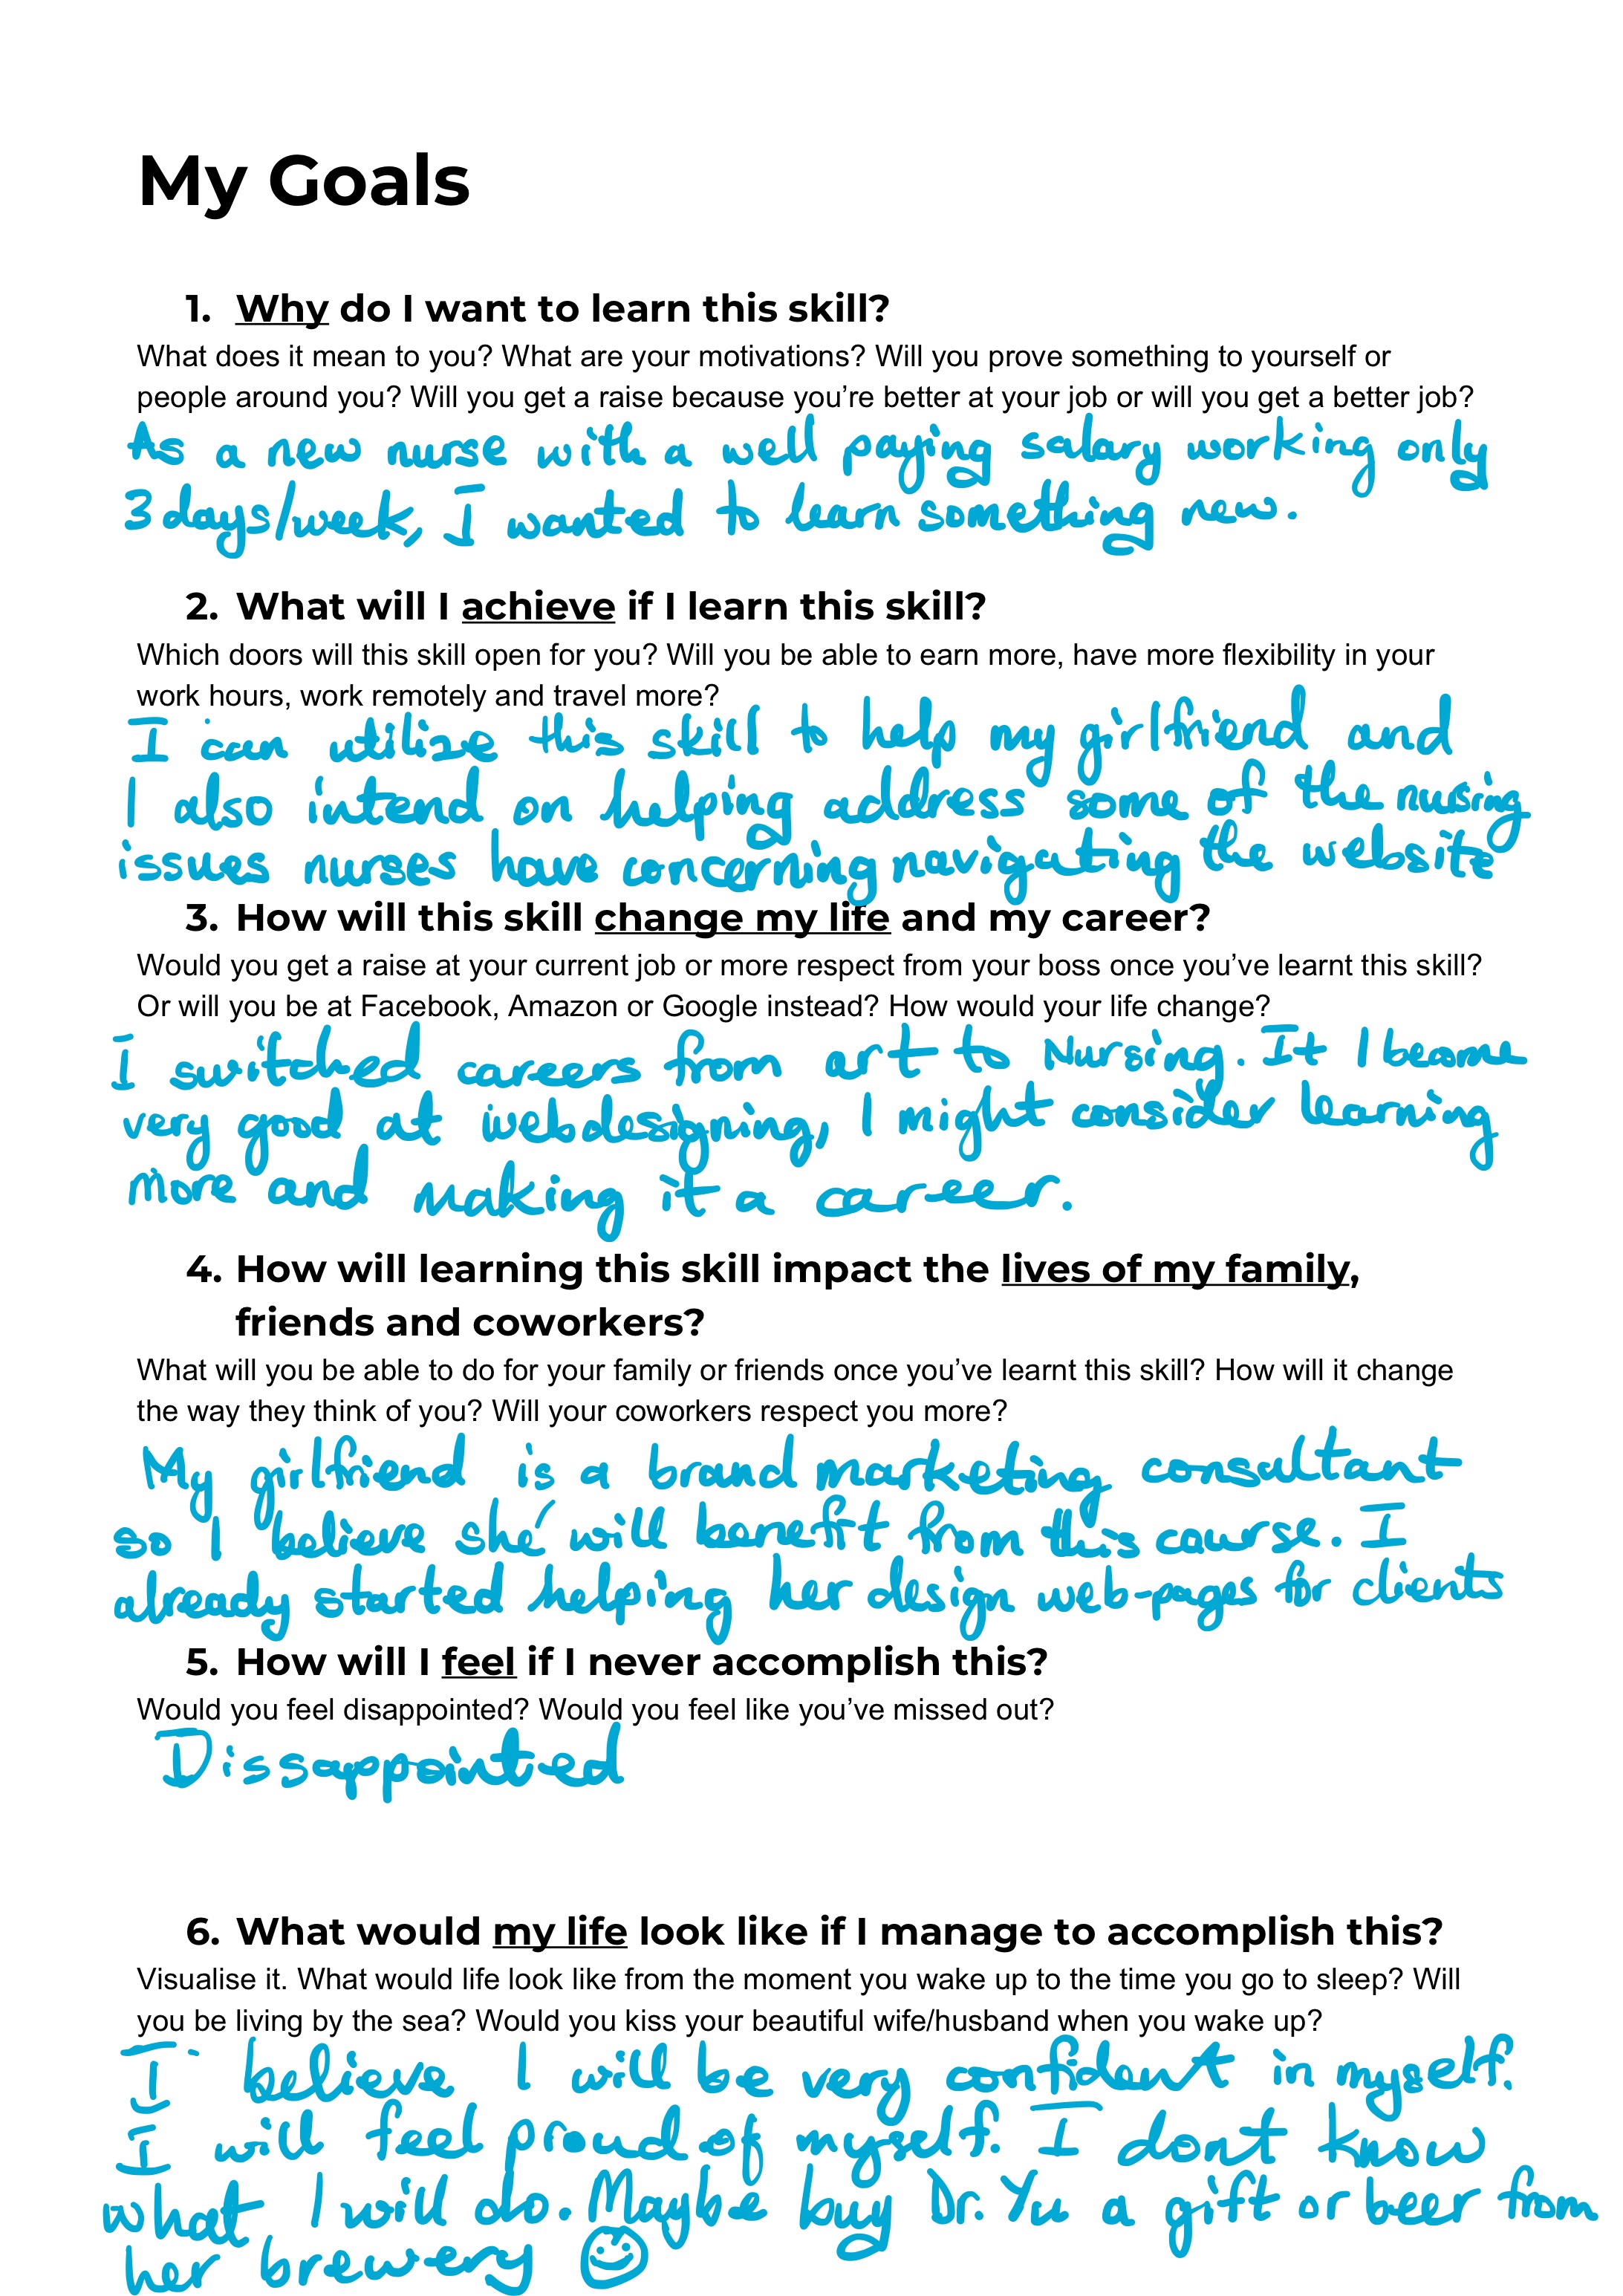 My Goals
1. Why do I want to learn this skill?
What does it mean to you? What are your motivations? Will you prove something to yourself or
people around you? Will you get a raise because you're better at your job or will you get a better job?
As a new nurse with a well paying salary working only
3 days/week, I wanted to learn something new.
2. What will I achieve if I learn this skill?
Which doors will this skill open for you? Will you be able to earn more, have more flexibility in your
work hours, work remotely and travel more?
I can utilize this skill to help my girlfriend and
I also intend on helping address some of the nursing
issues nurses have concerning navigating the website
3. How will this skill change my life and my career?
Would you get a raise at your current job or more respect from your boss once you've learnt this skill?
Or will you be at Facebook, Amazon or Google instead? How would your life change?
I switched careers from art to Nursing. It I become
very good at webdesigning, I might consider learning
more and making it a career.
4. How will learning this skill impact the lives of my family,
friends and coworkers?
What will you be able to do for your family or friends once you've learnt this skill? How will it change
the way they think of you? Will your coworkers respect you more?
My girlfriend is a brand marketing consultant
so I believe she will benefit from this course. I
already started helping her design web-pages for clients
5. How will I feel if I never accomplish this?
Would you feel disappointed? Would you feel like you've missed out?
Dissappointed
6. What would my life look like if I manage to accomplish this?
Visualise it. What would life look like from the moment you wake up to the time you go to sleep? Will
you be living by the sea? Would you kiss your beautiful wife/husband when you wake up?
I believe I will be very confident in myself.
I will feel proud of myself. I dont know
what I will do. Maybe buy Dr. Yu a gift or beer from
her brewery